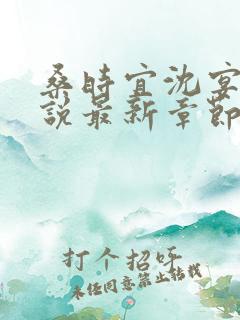 桑时宜沈宴
说最新章节
打个招呼
未经同意禁止转载